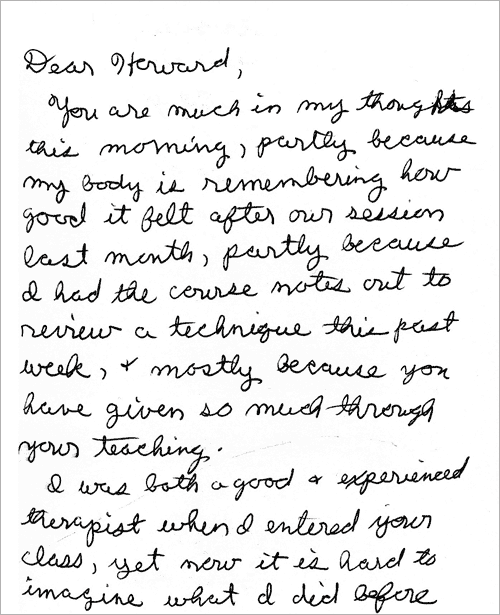 Dear Howard,
You are much in my thoughts
this morning, partly because
my body is remembering how
good it felt after our session
last month, partly because
I had the course notes out to
review a technique this past
week, & mostly because you
have given so much through
your teaching.
I was both a good & experienced
therapist when I entered your
class, yet now it is hard to
imagine what I did before